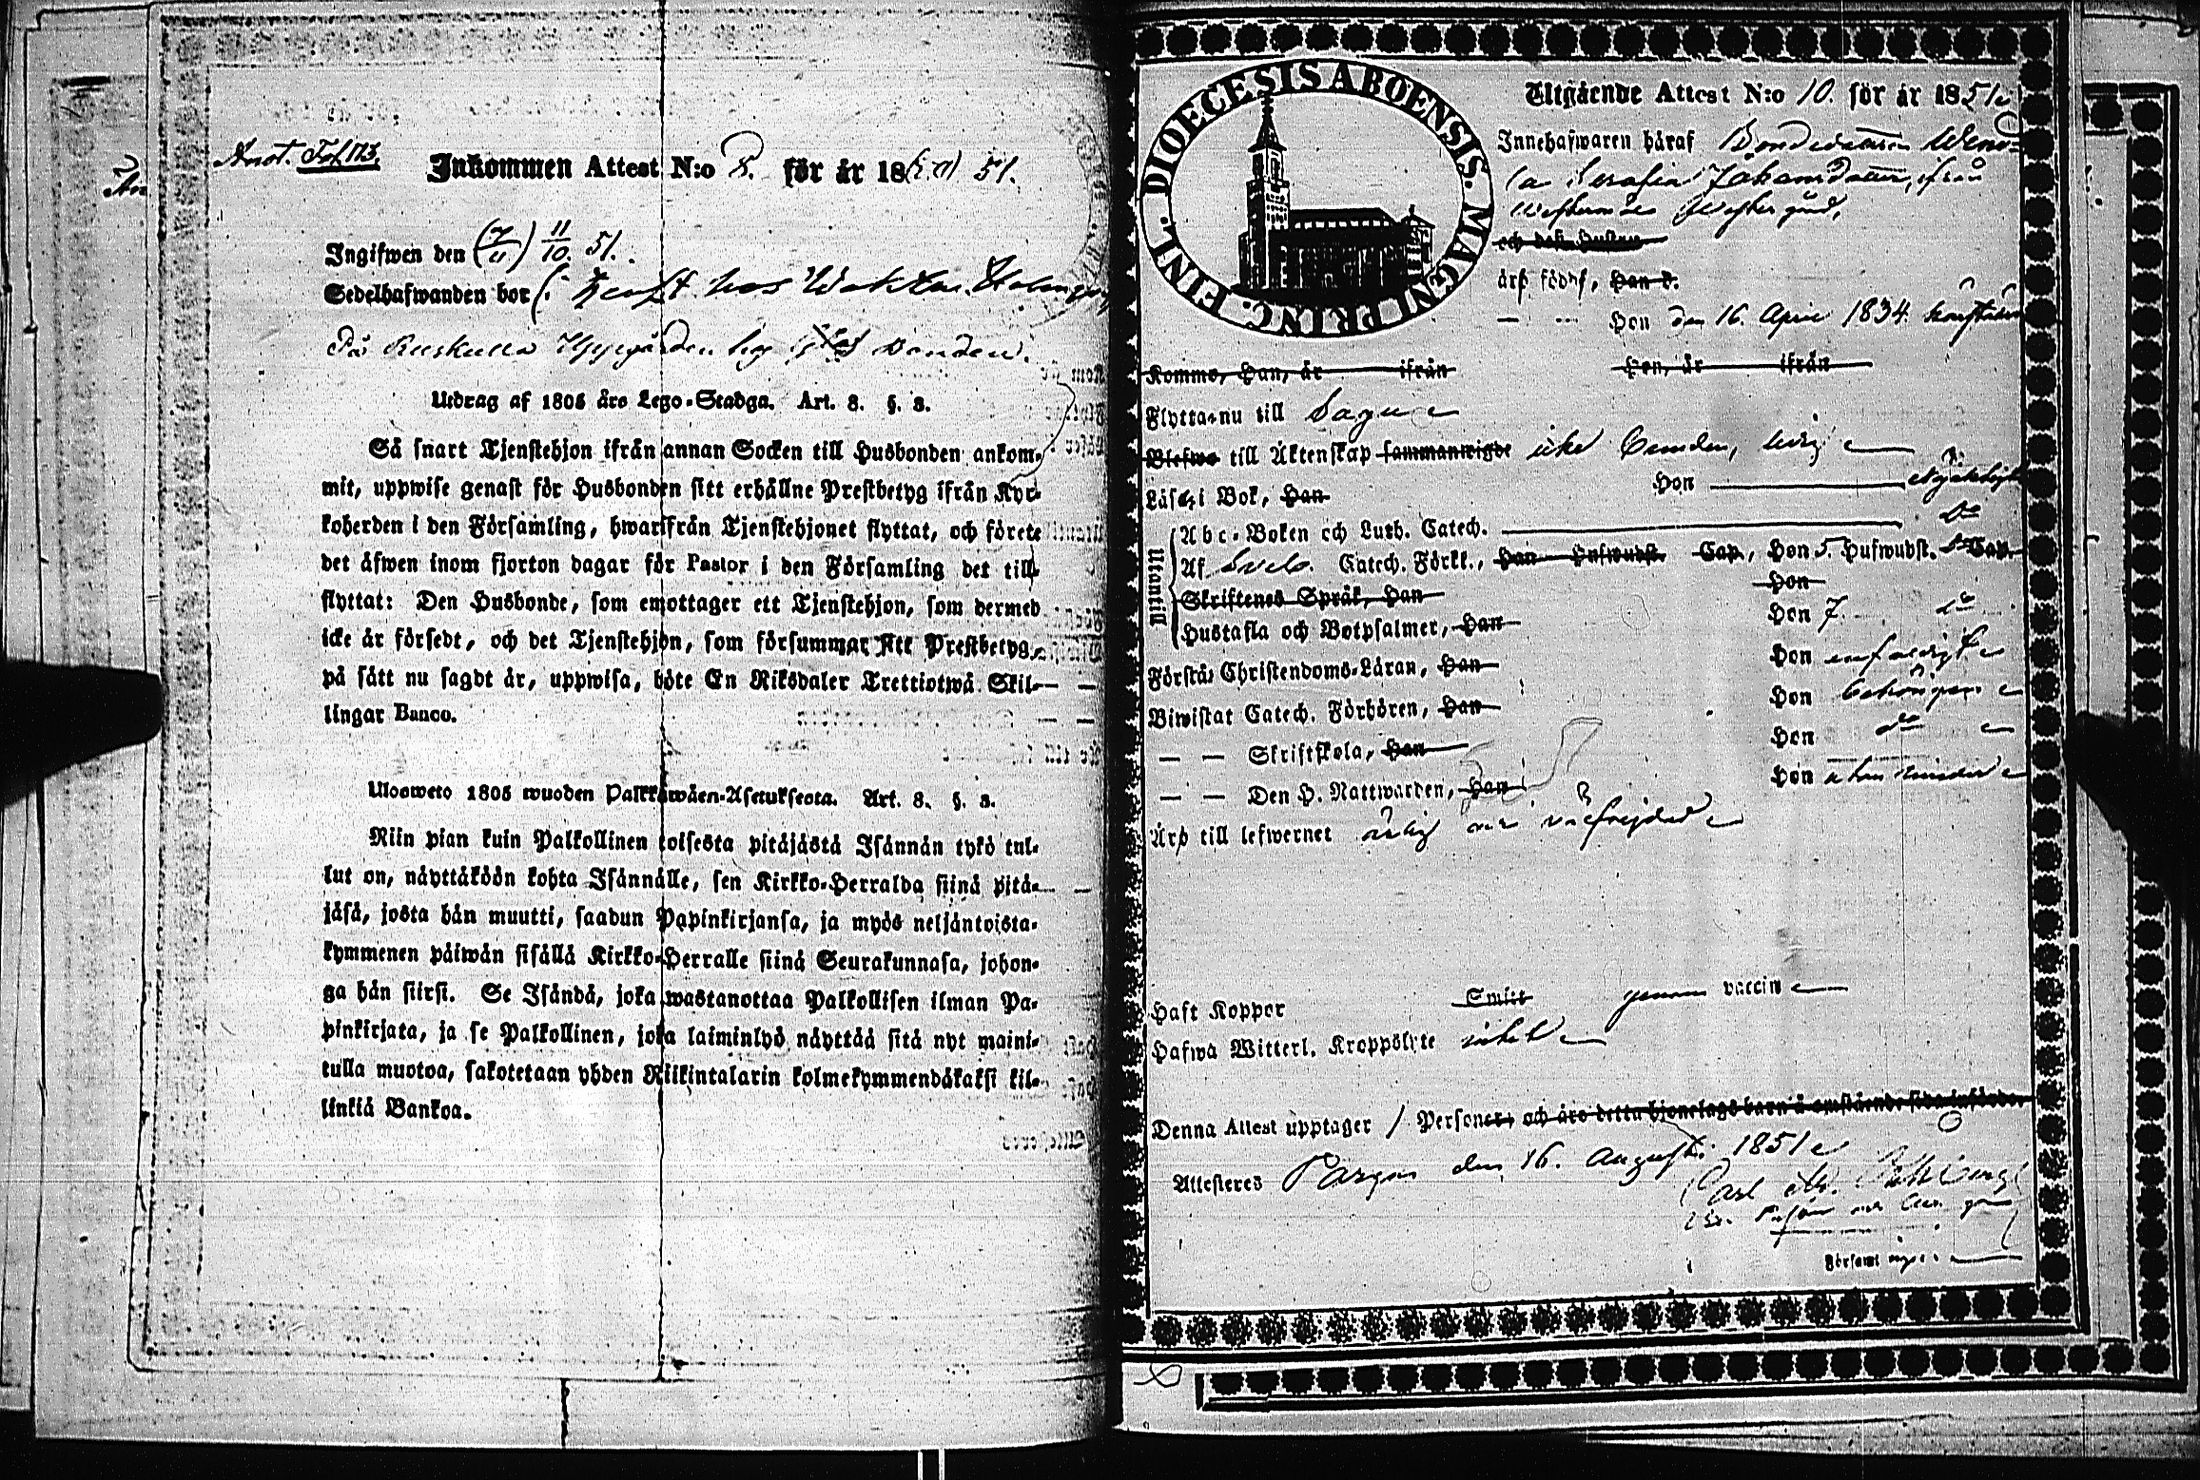 Anot. Fol. 173.
Inkommen Attest N:o 8. för år 18 51.
Ingifwen den (7/11) 11/10 51.
Sedelhafwanden bor hos
På Uppgården hos Bonden.
Utdrag af 1805 års Lego-Stadga. Art. 8. §. 3.
Så snart Tjenstehjon ifrån annan Socken till Husbonden ankom-
mit, uppwise genast för Husbonden sitt erhållne Prestbetyg ifrån Kyr-
koherden i den Församling, hwarifrån Tjenstehjonet flyttat, och förete
det åfwen inom fjorton dagar för Pastor i den Församling det till-
flyttat: Den Husbonde, som emottager ett Tjenstehjon, som dermed
icke är försedt, och det Tjenstehjon, som försummar sitt Prestbetyg,
på sått nu sagdt är, uppwisa, böte En Riksdaler Trettiotwå Skil-
lingar Banco.
Uloswcto 1805 wuoden Palkkawåen-Asetuksesta. Art. 8. §. 3.
Niin pian kuin Palkollinen toisesta pitåjåstå Isånnån tykö tul-
lut on, nåyttåköön kohta Isånnålle, sen Kirkko-Herralda siinå pitå-
jåså, josta hån muutti, saadun Papinkirjansa, ja myös neljåntoista-
kymmenen påiwån sisållå Kirkko-Herralle siinå Seurakunnasa, johon-
ga hån siirsi. Se Isåndå, joka wastanottaa Palkollisen ilman Pa-
pinkirjata, ja se Palkollinen, joka laiminlyö nåyttåå sitå nyt maini-
tulla muotoa, sakotetaan yhden Riikintalarin kolmekymmendåkaksi kil-
linkiå Bankoa.
DIOECESIS ABOENSIS. MAGNI PRINC. FINL.
Utgående Attest N:o 10. för år 1851
Innehafwaren håraf Bondedottren Wend-
la Serafia Johansdotter, ifrån
och dess Hustru
års född, Han d.
— — Hon den 16. April 1834.
Kommo, Han, år ifrån Hon, år ifrån
Flytta nu till Sagu
Blefwo till Äktenskap sammanwigde icke bunden, ledig
Läsa, i Bok, Han Hon
Utantill
Abc-Boken och Luth. Catech. Do
Af Svebs. Catech. Förkl., Han Hufwudst. Cap., Hon 5. Hufwudst. Cap.
Skriftenes Språk, Han Hon
Hustafla och Botpsalmer, Han Hon 7. do
Förstå: Christendoms-Låran, Han Hon enfaldigt
Biwistat Catech. Förhören, Han Hon behörigen
— — Skriftskola, Han Hon do
— — Den H. Nattwarden, Han Hon
Årö till lefwernet ärlig och välfrejdad
Haft Koppor Smitt genom vaccin
Hafwa Witterl. Kroppslyte intet
Denna Attest upptager 1 Personer, och äro detta hjonelags barn å omstående sida införde.
Attesteres Pargas den 16. Augusti 1851
Carl
Församl.